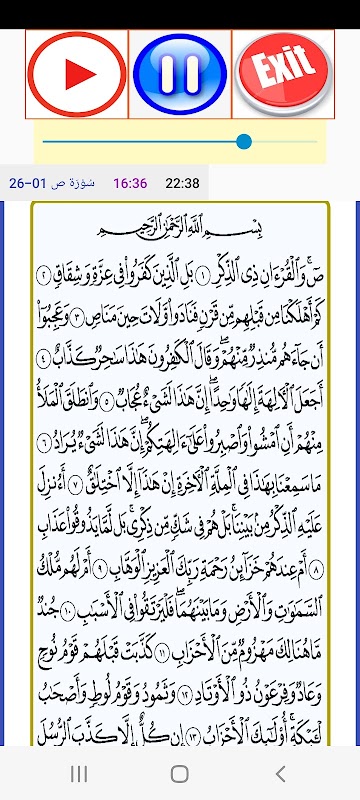 Exit
سُورَة ص 01–26 16:36 22:38
بِسْمِ اللَّهِ الرَّحْمَٰنِ الرَّحِيمِ
صٓ ۚ وَالْقُرْءَانِ ذِي الذِّكْرِ ١ بَلِ الَّذِينَ كَفَرُوا۟ فِي عِزَّةٍ وَشِقَاقٍ ٢
كَمْ أَهْلَكْنَا مِن قَبْلِهِم مِّن قَرْنٍ فَنَادَوا۟ وَّلَاتَ حِينَ مَنَاصٍ ٣ وَعَجِبُوٓا۟
أَن جَآءَهُم مُّنذِرٌ مِّنْهُمْ ۖ وَقَالَ الْكَٰفِرُونَ هَٰذَا سَٰحِرٌ كَذَّابٌ ٤
أَجَعَلَ الْآلِهَةَ إِلَٰهًا وَٰحِدًا ۖ إِنَّ هَٰذَا لَشَيْءٌ عُجَابٌ ٥ وَانطَلَقَ الْمَلَأُ
مِنْهُمْ أَنِ امْشُوا۟ وَاصْبِرُوا۟ عَلَىٰٓ ءَالِهَتِكُمْ ۖ إِنَّ هَٰذَا لَشَيْءٌ يُرَادُ ٦
مَا سَمِعْنَا بِهَٰذَا فِي الْمِلَّةِ الْآخِرَةِ إِنْ هَٰذَآ إِلَّا اخْتِلَٰقٌ ٧ أَءُنزِلَ
عَلَيْهِ الذِّكْرُ مِنۢ بَيْنِنَا ۚ بَلْ هُمْ فِي شَكٍّ مِّن ذِكْرِي ۖ بَل لَّمَّا يَذُوقُوا۟ عَذَابِ
٨ أَمْ عِندَهُمْ خَزَآئِنُ رَحْمَةِ رَبِّكَ الْعَزِيزِ الْوَهَّابِ ٩ أَمْ لَهُم مُّلْكُ
السَّمَٰوَٰتِ وَالْأَرْضِ وَمَا بَيْنَهُمَا ۖ فَلْيَرْتَقُوا۟ فِي الْأَسْبَٰبِ ١٠ جُندٌ
مَّا هُنَالِكَ مَهْزُومٌ مِّنَ الْأَحْزَابِ ١١ كَذَّبَتْ قَبْلَهُمْ قَوْمُ نُوحٍ
وَعَادٌ وَفِرْعَوْنُ ذُو الْأَوْتَادِ ١٢ وَثَمُودُ وَقَوْمُ لُوطٍ وَأَصْحَٰبُ
لْـَٔيْكَةِ ۚ أُو۟لَٰٓئِكَ الْأَحْزَابُ ١٣ إِن كُلٌّ إِلَّا كَذَّبَ الرُّسُلَ